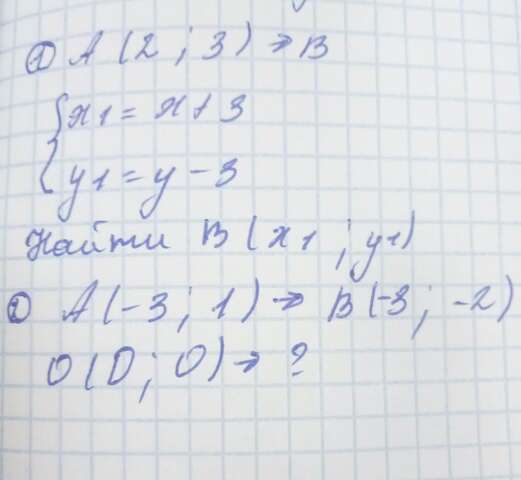 ① A (2 ; 3) → B
{ x1 = x + 3
y1 = y - 3
Найти B (x1 ; y1)
② A (-3 ; 1) → B (-3 ; -2)
O (0 ; 0) → ?